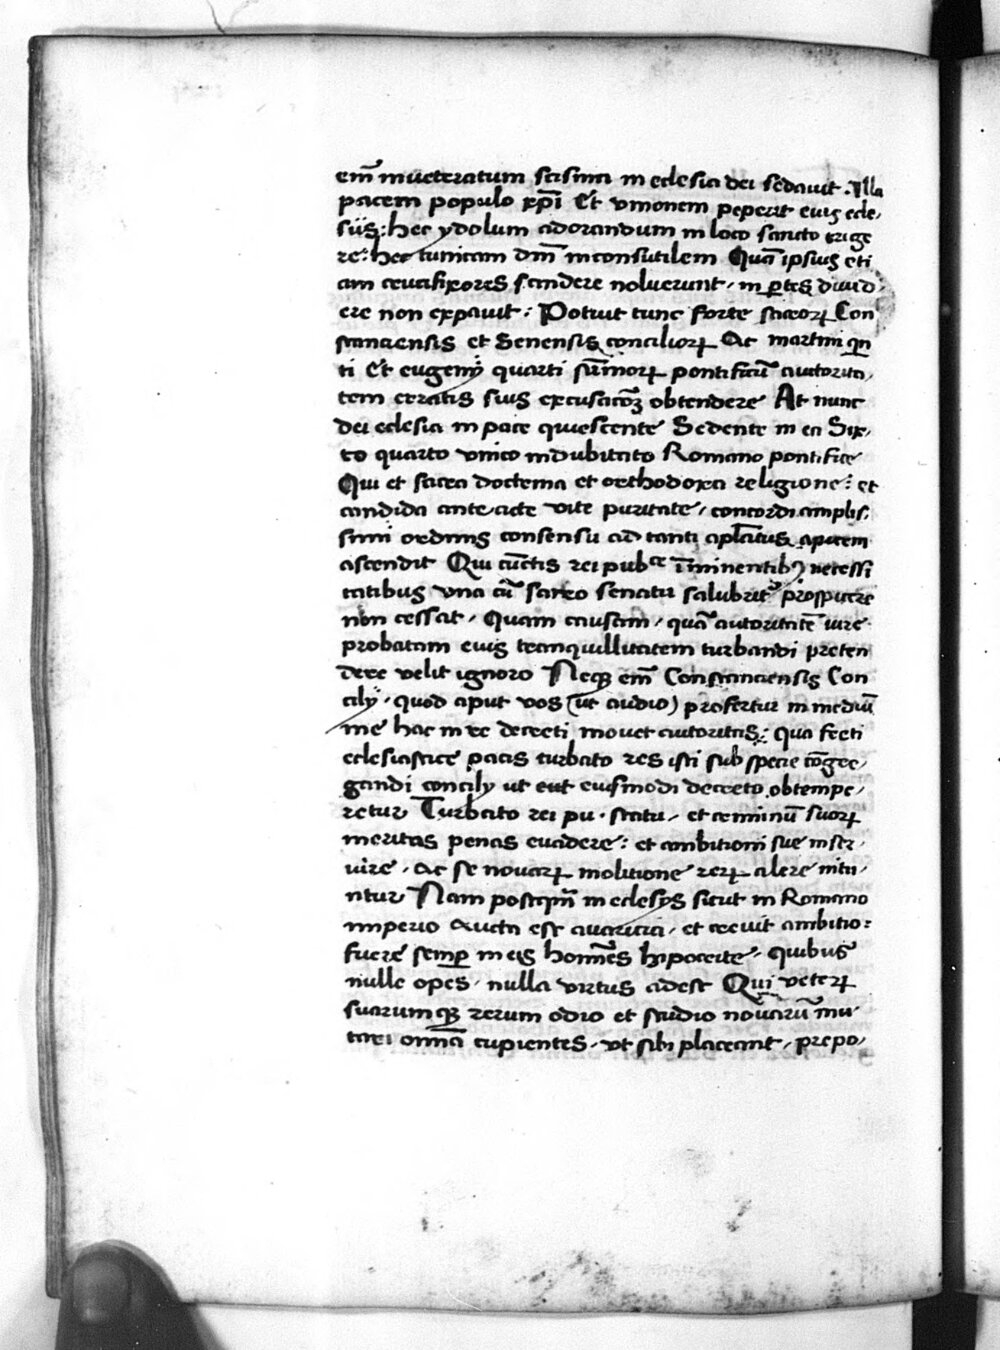 em̄ inueteratum scisma in eclesia dei sedauit. Illa
pacem populo xp̄i Et vnionem peperit eius ecle,
siis: hec ydolum adorandum in loco sancto erige
re: hec tunicam dn̄i inconsutilem Quā ipsius eti
am crucifixores scindere noluerunt, in ꝑtes diuid,
ere non expauit: Potuit tunc forte sacroꝝ Con
stanciensis et Senensis concilioꝝ Ac martini qͥn
ti Et eugenij quarti sūmoꝝ pontificū autorita,
tem erratis suis excusacōꝫ obtendere At nunc
dei eclesia in pace quiescente Sedente in ea Six,
to quarto vnico indubitato Romano pontifice
Qui et sacra doctrina et orthodoxa religione: et
candida ante acte vite puritate, concordi amplis,
simi ordinis consensu ad tanti ap̄latus apicem
ascendit Qui cūctis rei pubᶜᵉ īminentibꝰ necessi
tatibus vna cū sacro senatu salubrit̉ prospicere
non cessat, Quam causam, quā autoritatē iure
probatam eius tranquillitatem turbandi preten
dere velit ignoro Neqꝫ em̄ Constanciensis Con
cilij, quod aput vos (ut audio) profertur in mediū
me hac in re decreti mouet autoritas: qua fecti
eclesiastice pacis turbato res isti sub specie cōgre,
gandi concilij ut eut eiusmodi decreto obtempe,
retur Turbato rei pu. statu, et criminū suoꝝ
meritas penas euadere: et ambitioni sue inser,
uire, ac se nouaꝝ molitione reꝝ alere nitu,
ntur Nam postqm̄ in eclesijs sicut in Romano
imperio Aucta est auaricia, et creuit ambitio:
fuere semꝑ in eis homīes hipocrite, quibus
nulle opes, nulla virtus adest Qui veteꝝ
suarumqꝫ rerum odio et studio nouarū mu,
tari omīa cupientes, vt sibi placeant, prepo,